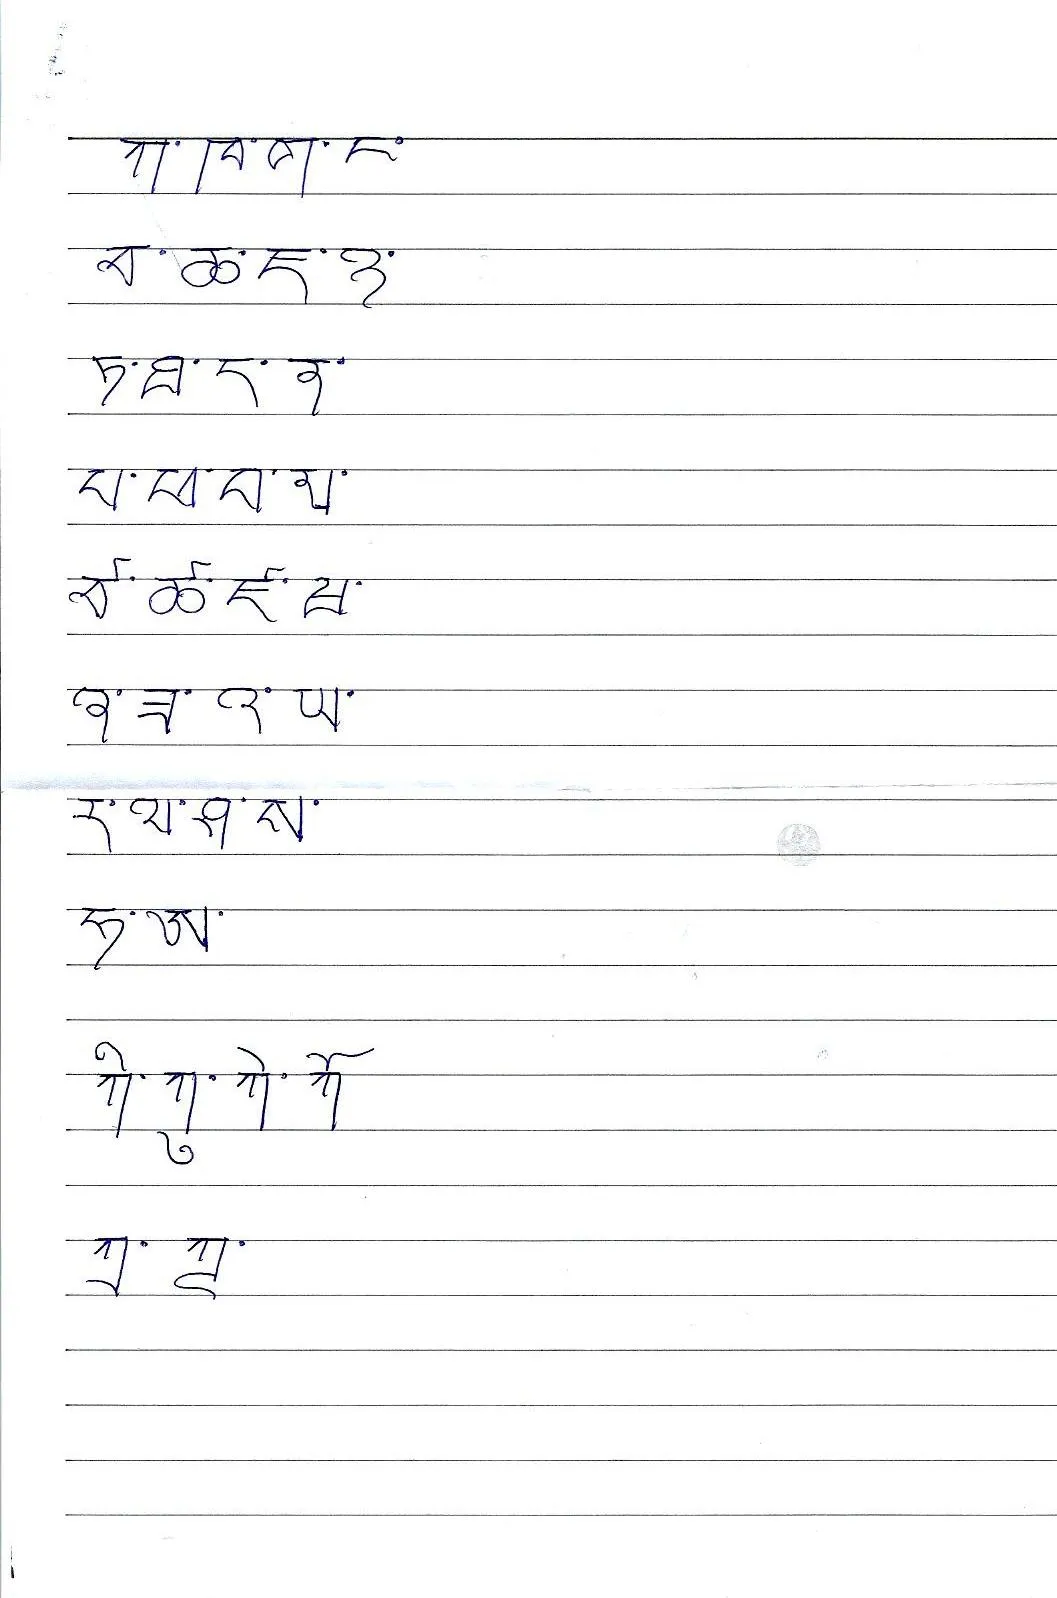 ཀ་ཁ་ག་ང་
ཅ་ཆ་ཇ་ཉ་
ཏ་ཐ་ད་ན་
པ་ཕ་བ་མ་
ཙ་ཚ་ཛ་ཝ་
ཞ་ཟ་འ་ཡ་
ར་ལ་ཤ་ས་
ཧ་ཨ་
ཀི་ཀུ་ཀེ་ཀོ
ཀྲ་ཀྱ་